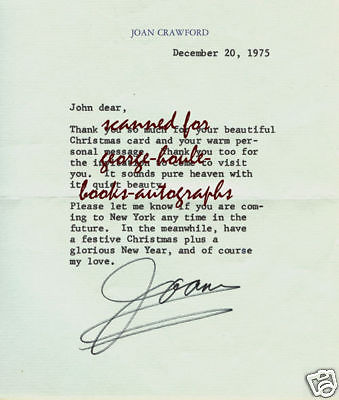 JOAN CRAWFORD
December 20, 1975
John dear,
Thank you so much for your beautiful
Christmas card and your warm per-
sonal message. Thank you too for
the invitation to come to visit
you. It sounds pure heaven with
its quiet beauty.
Please let me know if you are com-
ing to New York any time in the
future. In the meanwhile, have
a festive Christmas plus a
glorious New Year, and of course
my love.
Joan
scanned for
george-houle-
books-autographs